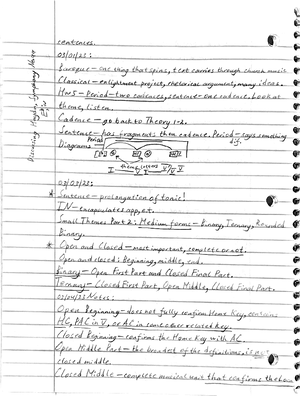 sentences.
03/01/23:
Baroque – one thing that spins, text carries through church music
Classical – enlightment project, rhetorical argument, many ideas.
HW5 – Period – two cadences, sentence – one cadence. Look at
theme, listen.
Cadence – go back to Theory 1-2.
Sentence – has fragments then cadence. Period – says something
Diagrams Period
I V I V
03/03/23:
* Sentence – prolongation of tonic!
IN – encapsulates
Small Themes Part 2: Medium forms – Binary, Ternary, Rounded
Binary.
* Open and Closed – most important, complete or not.
Open and closed: Beginning, middle, end.
Binary – Open First Part and Closed Final Part.
Ternary – Closed First Part, Open Middle, Closed Final Part.
03/04/23 Notes:
Open Beginning – does not fully confirm Home Key, contains
HC, PAC in V, or AC in some other related key.
Closed Beginning – confirms the Home Key with AC.
Open Middle Part – the broadest of the definitions, is a
closed middle.
Closed Middle – complete musical unit that confirms the home
Discussing Haydn, Symphony